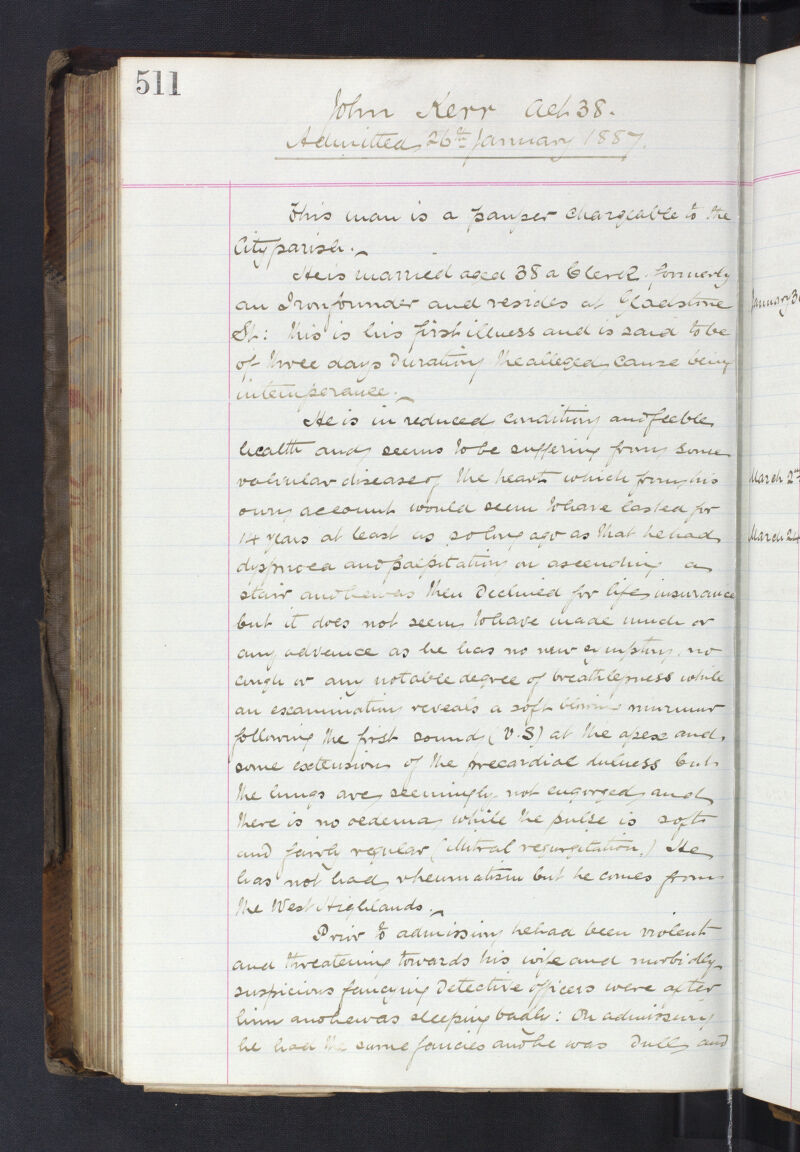 511
John Kerr Aet. 38.
Admitted 26th January 1887.
This man is a pauper chargeable to the
City parish.
He is married aged 38 a Clerk, formerly
an Ironfounder and resides at Gladstone
St: This is his first illness and is said to be
of three days duration, the alleged cause being
intemperance.
He is in reduced condition and feeble
health and seems to be suffering from some
valvular disease of the heart which from his
own account would seem to have lasted for
14 years at least as so long ago as that he had
dyspnoea and palpitation on ascending a
stair and he was then declined for life insurance
but it does not seem to have made much or
any advance as he has no new symptom, no
cough or any notable degree of breathlessness while
an examination reveals a soft blowing murmur
following the first sound (V.S) at the apex and
some extension of the precardial dulness but
the lungs are seemingly not engorged and
there is no oedema while the pulse is soft
and fairly regular (Mitral regurgitation.) He
has not had rheumatism but he comes from
the West Highlands.
Prior to admission he had been violent
and threatening towards his wife and morbidly
suspicious fancying Detective officers were after
him and he was sleeping badly: On admission
he had the same fancies and he was dull and
January 3
March 2nd
March 24